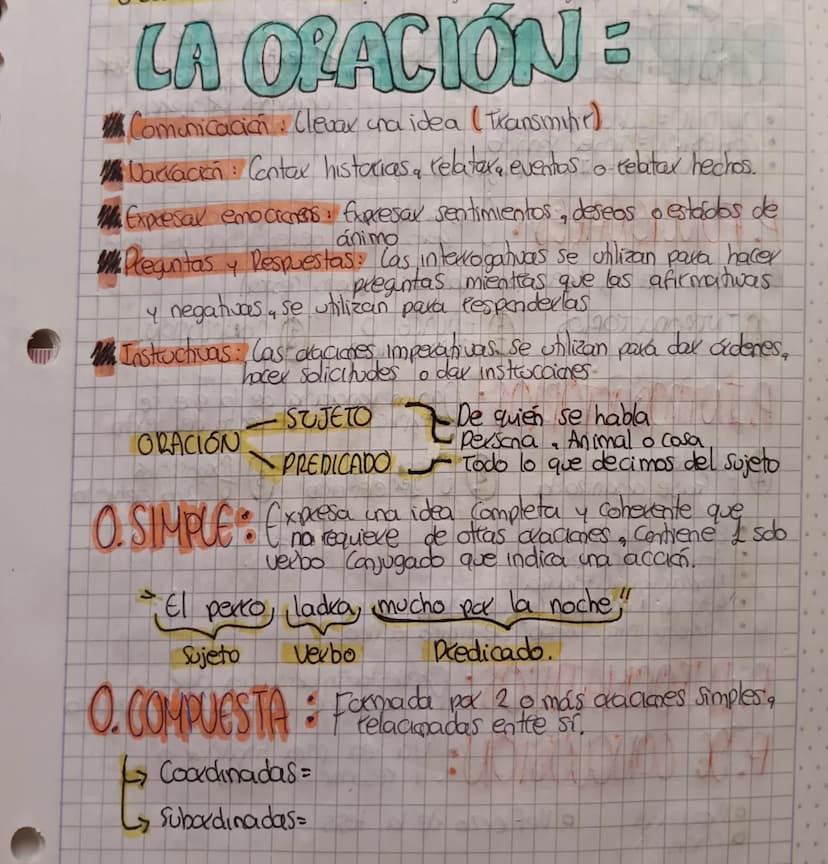 LA ORACIÓN =
Comunicación: Llevar una idea (Transmitir)
Narración: Contar historias, relatar, eventos o relatar hechos.
Expresar emociones: Expresar sentimientos, deseos o estados de
ánimo
Preguntas y Respuestas: Las interrogativas se utilizan para hacer
preguntas mientras que las afirmativas
y negativas, se utilizan para responderlas
Instructivas: Las oraciones imperativas se utilizan para dar órdenes,
hacer solicitudes o dar instrucciones.
ORACIÓN
SUJETO
De quién se habla
Persona, Animal o cosa
PREDICADO
Todo lo que decimos del sujeto
O. SIMPLE: Expresa una idea completa y coherente que
no requiere de otras oraciones, contiene 1 solo
verbo conjugado que indica una acción.
"El perro, ladra, mucho por la noche,"
Sujeto Verbo Predicado.
O. COMPUESTA: Formada por 2 o más oraciones simples,
relacionadas entre sí.
Coordinadas=
Subordinadas=